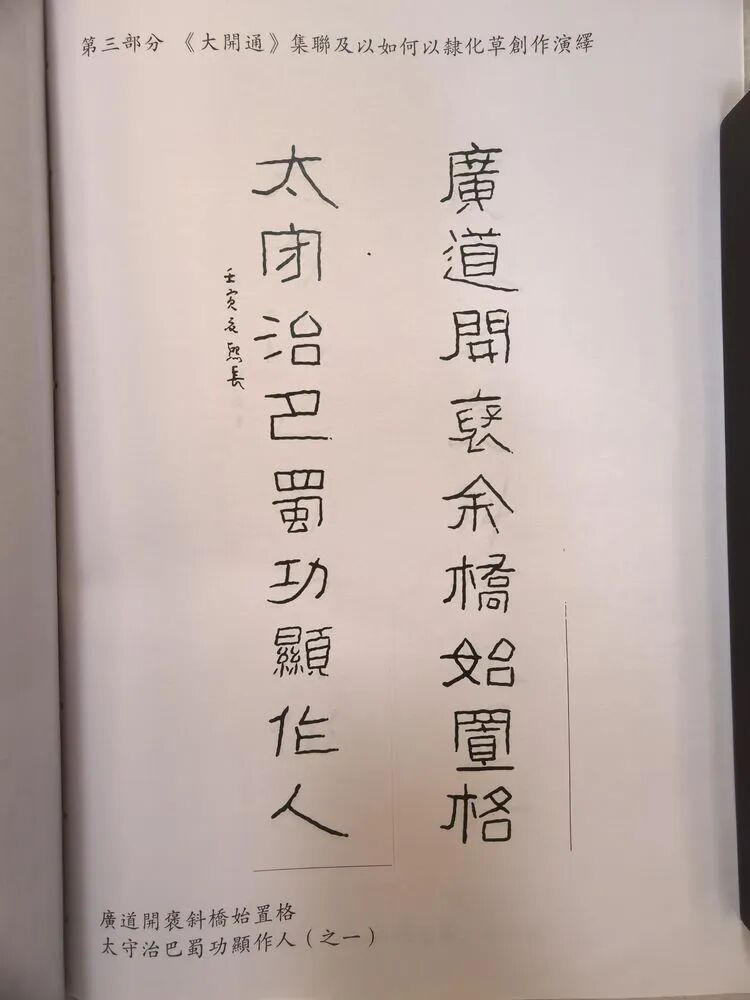 第三部分 《大開通》集聯及以如何以隸化草創作演繹
廣道開褒余橋始置格
太守治巴蜀功顯作人
壬寅冬熙長
廣道開褒斜橋始置格
太守治巴蜀功顯作人（之一）